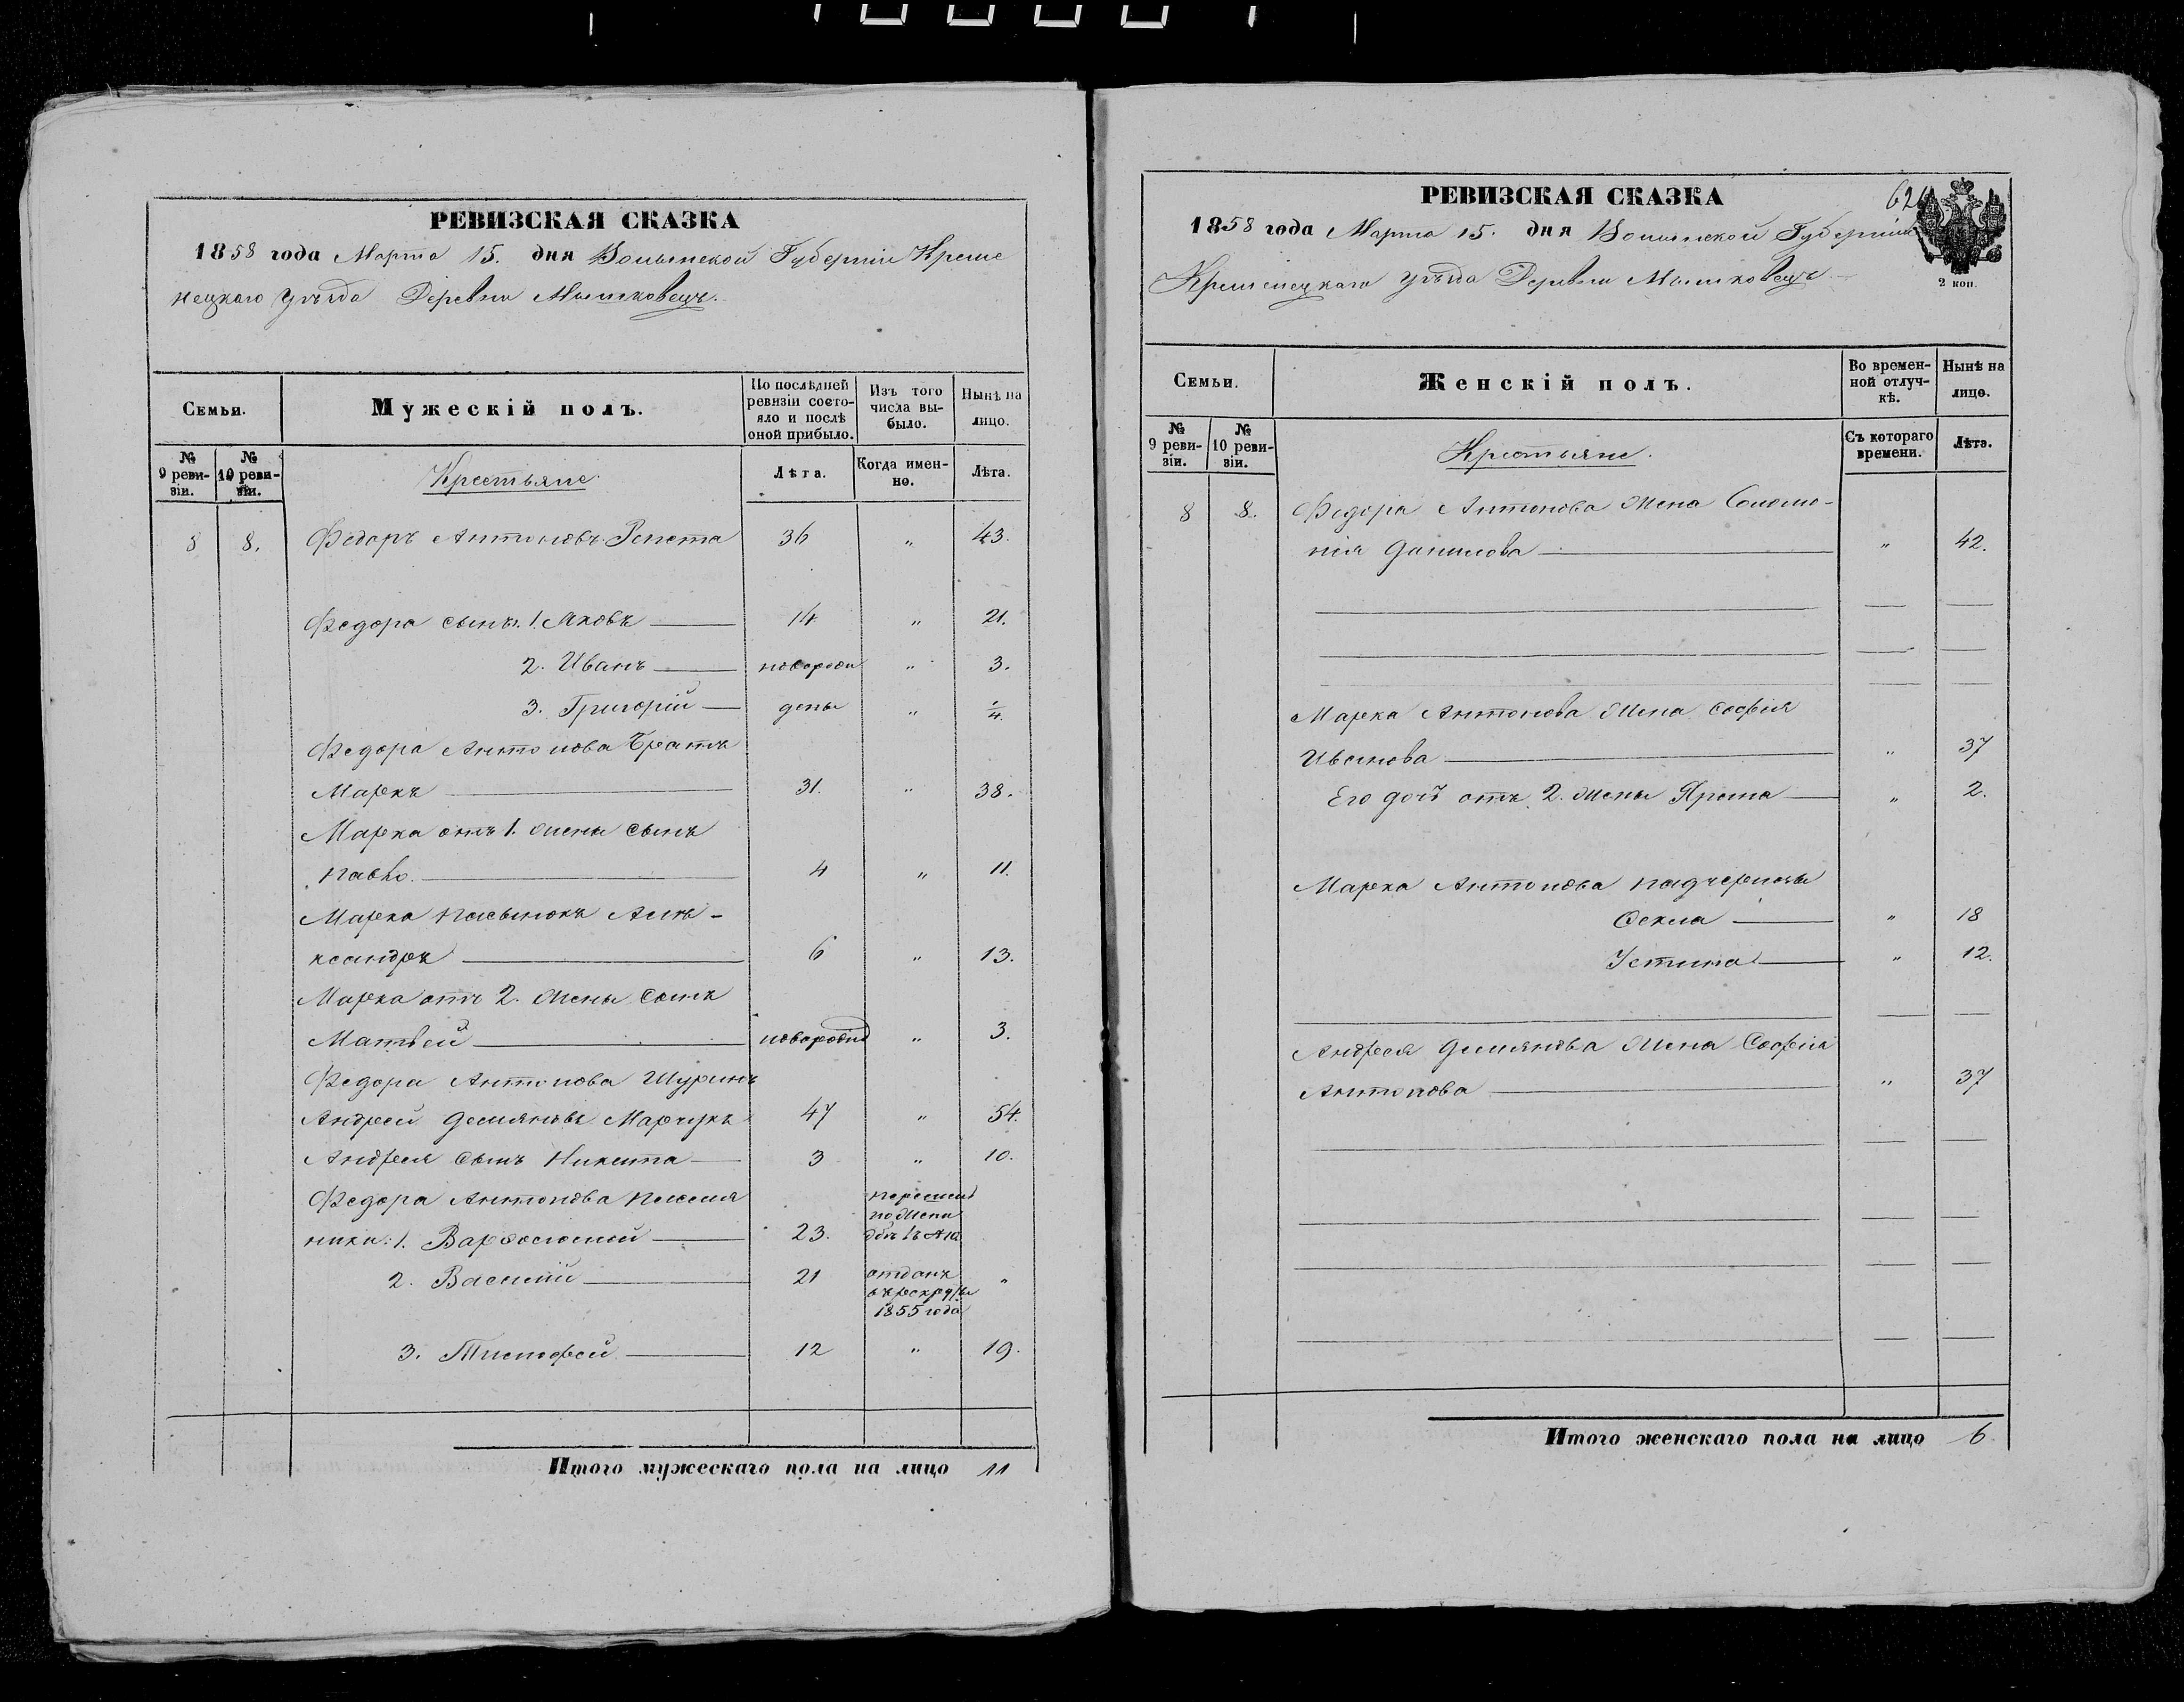 РЕВИЗСКАЯ СКАЗКА
1858 года Марта 15. дня Волынской Губерніи Креме
нецкаго Уѣзда Деревни Мышковецъ.
Семьи.
Мужескій полъ.
По послѣдней ревизіи состояло и послѣ оной прибыло.
Изъ того числа выбыло.
Нынѣ на лицо.
№ 9 ревизіи.
№ 10 ревизіи.
Крестьяне.
Лѣта.
Когда именно.
Лѣта.
8 8. Федоръ Антоновъ Репета 36 " 43.
Федора сынъ: 1. Яковъ 14 " 21.
2. Иванъ новорожд " 3.
3. Григорій дены " ¼.
Федора Антонова Братъ
Марко 31. " 38.
Марка отъ 1. жены сынъ
Павло. 4 " 11.
Марка пасынокъ Але-
ксандръ 6 " 13.
Марка отъ 2. жены сынъ
Матвей новорожд " 3.
Федора Антонова Шуринъ
Андрей Демяновъ Марчукъ 47 " 54.
Андрея сынъ Никита 3 " 10.
Федора Антонова племя
ники: 1. Варфоломей 23. перемещ
2. Василій 21 отданъ "
въ рекруты
1855 года
3. Тимофей 12 " 19.
Итого мужескаго пола на лицо 11
РЕВИЗСКАЯ СКАЗКА
1858 года Марта 15. дня Волынской Губерніи
Кременецкаго Уѣзда Деревни Мышковецъ
2 коп.
Семьи.
Женскій полъ.
Во временной отлучкѣ.
Нынѣ на лицо.
№ 9 ревизіи.
№ 10 ревизіи.
Крестьяне.
Съ котораго времени.
Лѣта.
8 8. Федора Антонова жена Соломо-
нія Данилова " 42.
Марка Антонова жена Софія
Иванова " 37
Его дочь отъ 2. жены Ярына " 2.
Марка Антонова падчерицы
Фекла " 18
Устина " 12.
Андрея Демянова жена Софія
Антонова " 37
Итого женскаго пола на лицо 6